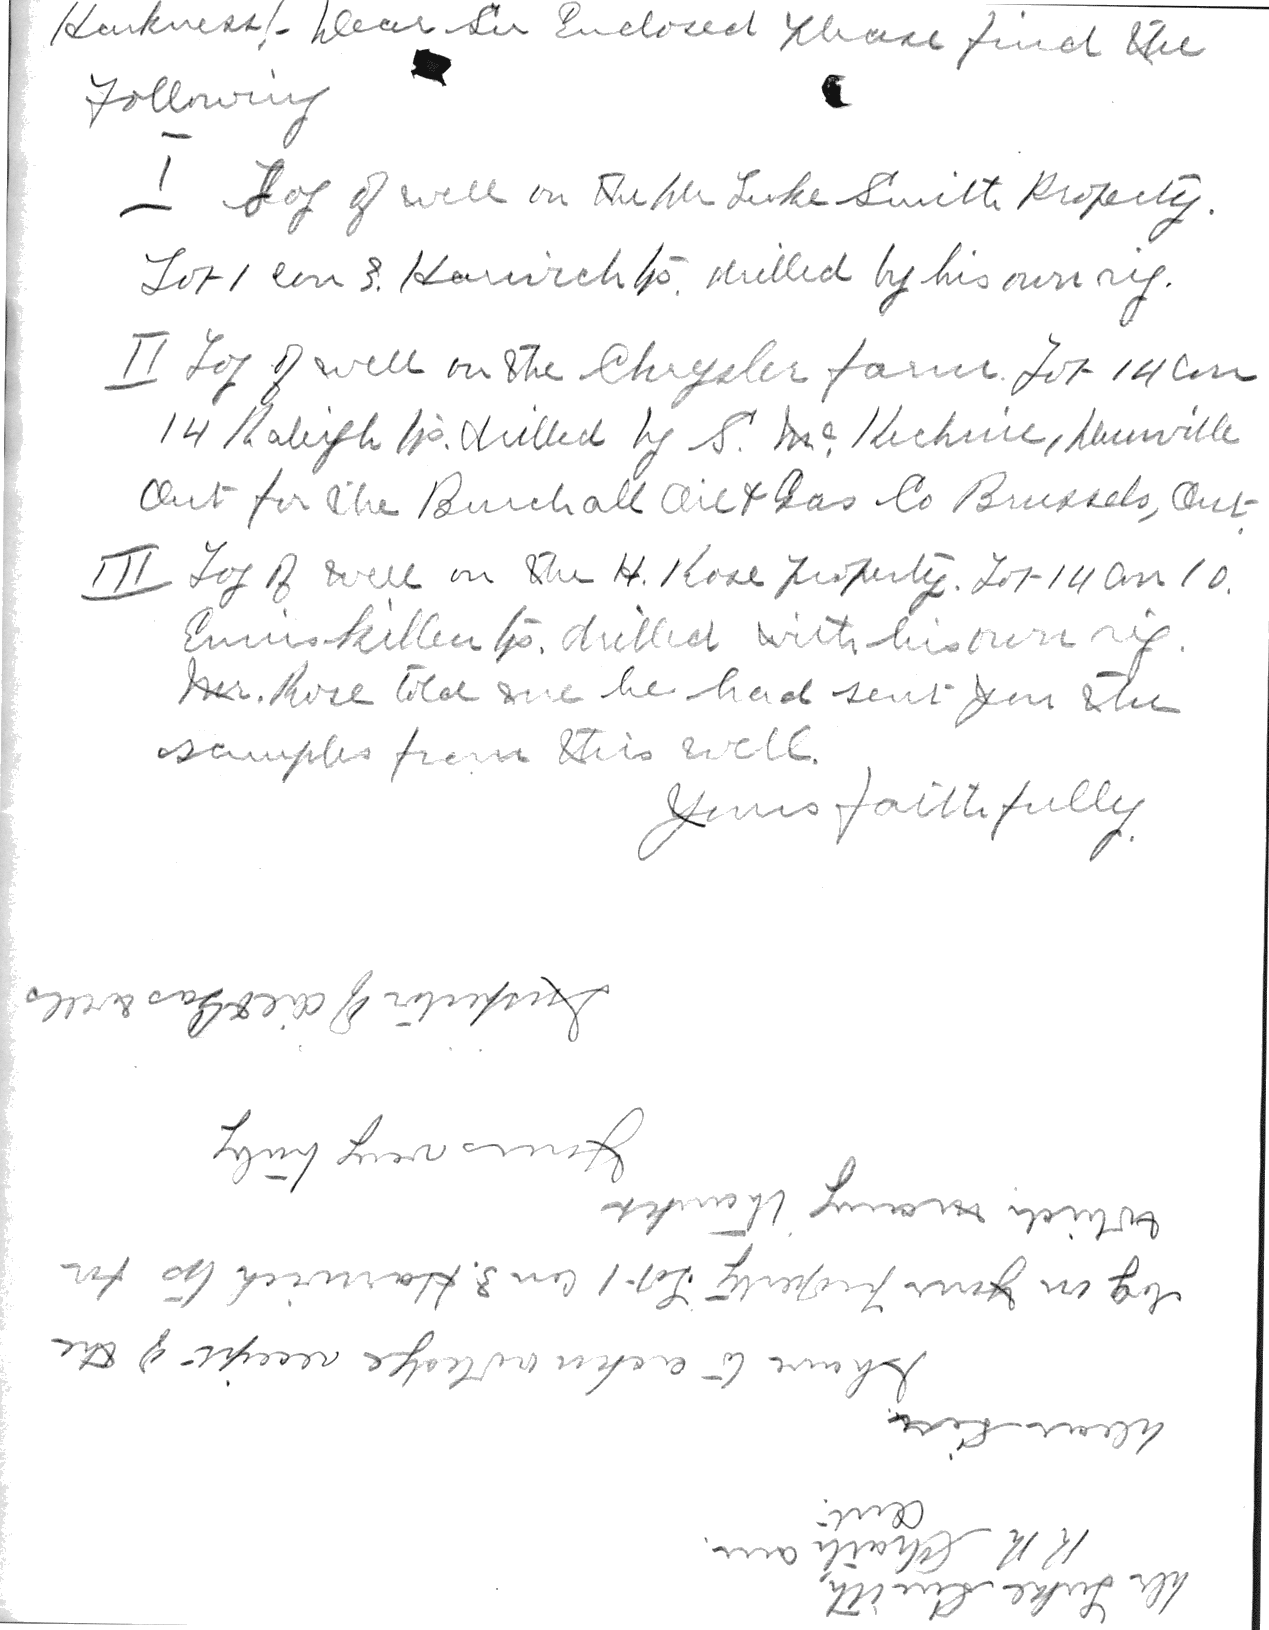 Harkness!- Dear Sir Enclosed please find the
following
I Log of well on the Mr Luke Smith Property.
Lot 1 con 3. Harwich tp. drilled by his own rig.
II Log of well on the Chrysler farm. Lot 14 Con
14 Raleigh tp. drilled by S. Mc. Kechnie, Dunnville
Ont for the Burchall Oil & Gas Co Brussels, Ont.
III Log of well on the H. Rose property. Lot 14 Con 10.
Enniskillen tp. drilled with his own rig.
Mr. Rose told me he had sent you the
samples from this well.
Yours faithfully.
Mr Luke Smith,
R R Chatham.
Ont.
Dear Sir.
I have to acknowledge receipt of the
log on your property Lot 1 Con 3. Harwich tp for
which many thanks
Yours very truly
Inspector of oil & Gas wells